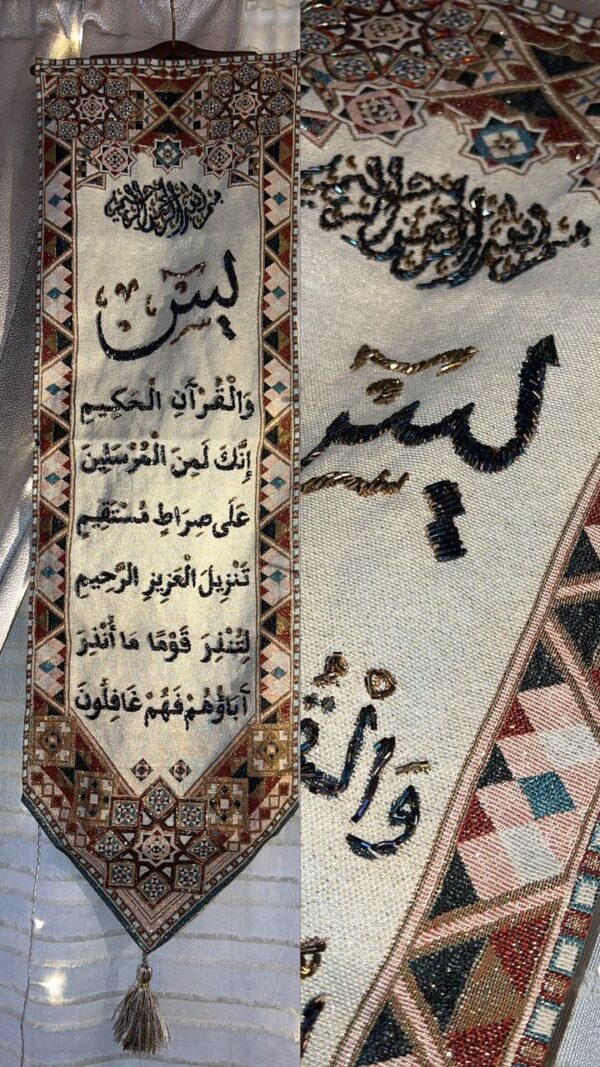 بسم الله الرحمن الرحيم
يس
وَالْقُرْآنِ الْحَكِيمِ
إِنَّكَ لَمِنَ الْمُرْسَلِينَ
عَلَى صِرَاطٍ مُسْتَقِيمٍ
تَنْزِيلَ الْعَزِيزِ الرَّحِيمِ
لِتُنْذِرَ قَوْمًا مَا أُنْذِرَ
آبَاؤُهُمْ فَهُمْ غَافِلُونَ